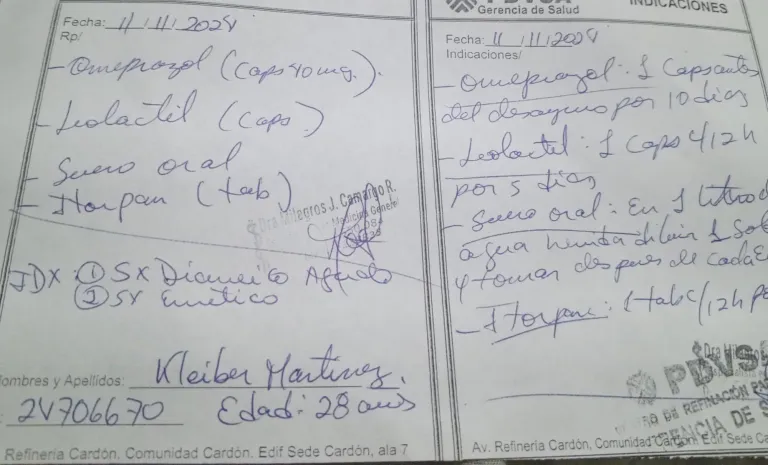 Fecha: 11/11/2024
Rp/
- Omeprazol (Caps 40 mg.).
- Leolactil (Caps.)
- Suero oral
- Itorpan (tab)
Dra. Milagros J. Camargo R.
Medicina General
IDX: ① SX Diarreico Agudo
② SX Emético
Nombres y Apellidos: Kleiber Martinez.
: 24706670 Edad: 28 años
Refinería Cardón, Comunidad Cardón. Edif Sede Cardón, ala 7
PDVSA
Gerencia de Salud
INDICACIONES
Fecha: 11/11/2024
Indicaciones/
- Omeprazol: 1 Caps antes
del desayuno por 10 dias
- Leolactil: 1 Caps c/12h
por 5 dias
- Suero oral: En 1 litro d
agua hervida diluir 1 Sob
y tomar despues de cada E
- Itorpan: 1 tab c/12h po
PDVSA
Av. Refinería Cardón, Comunidad Cardón. Edif Sede Ca